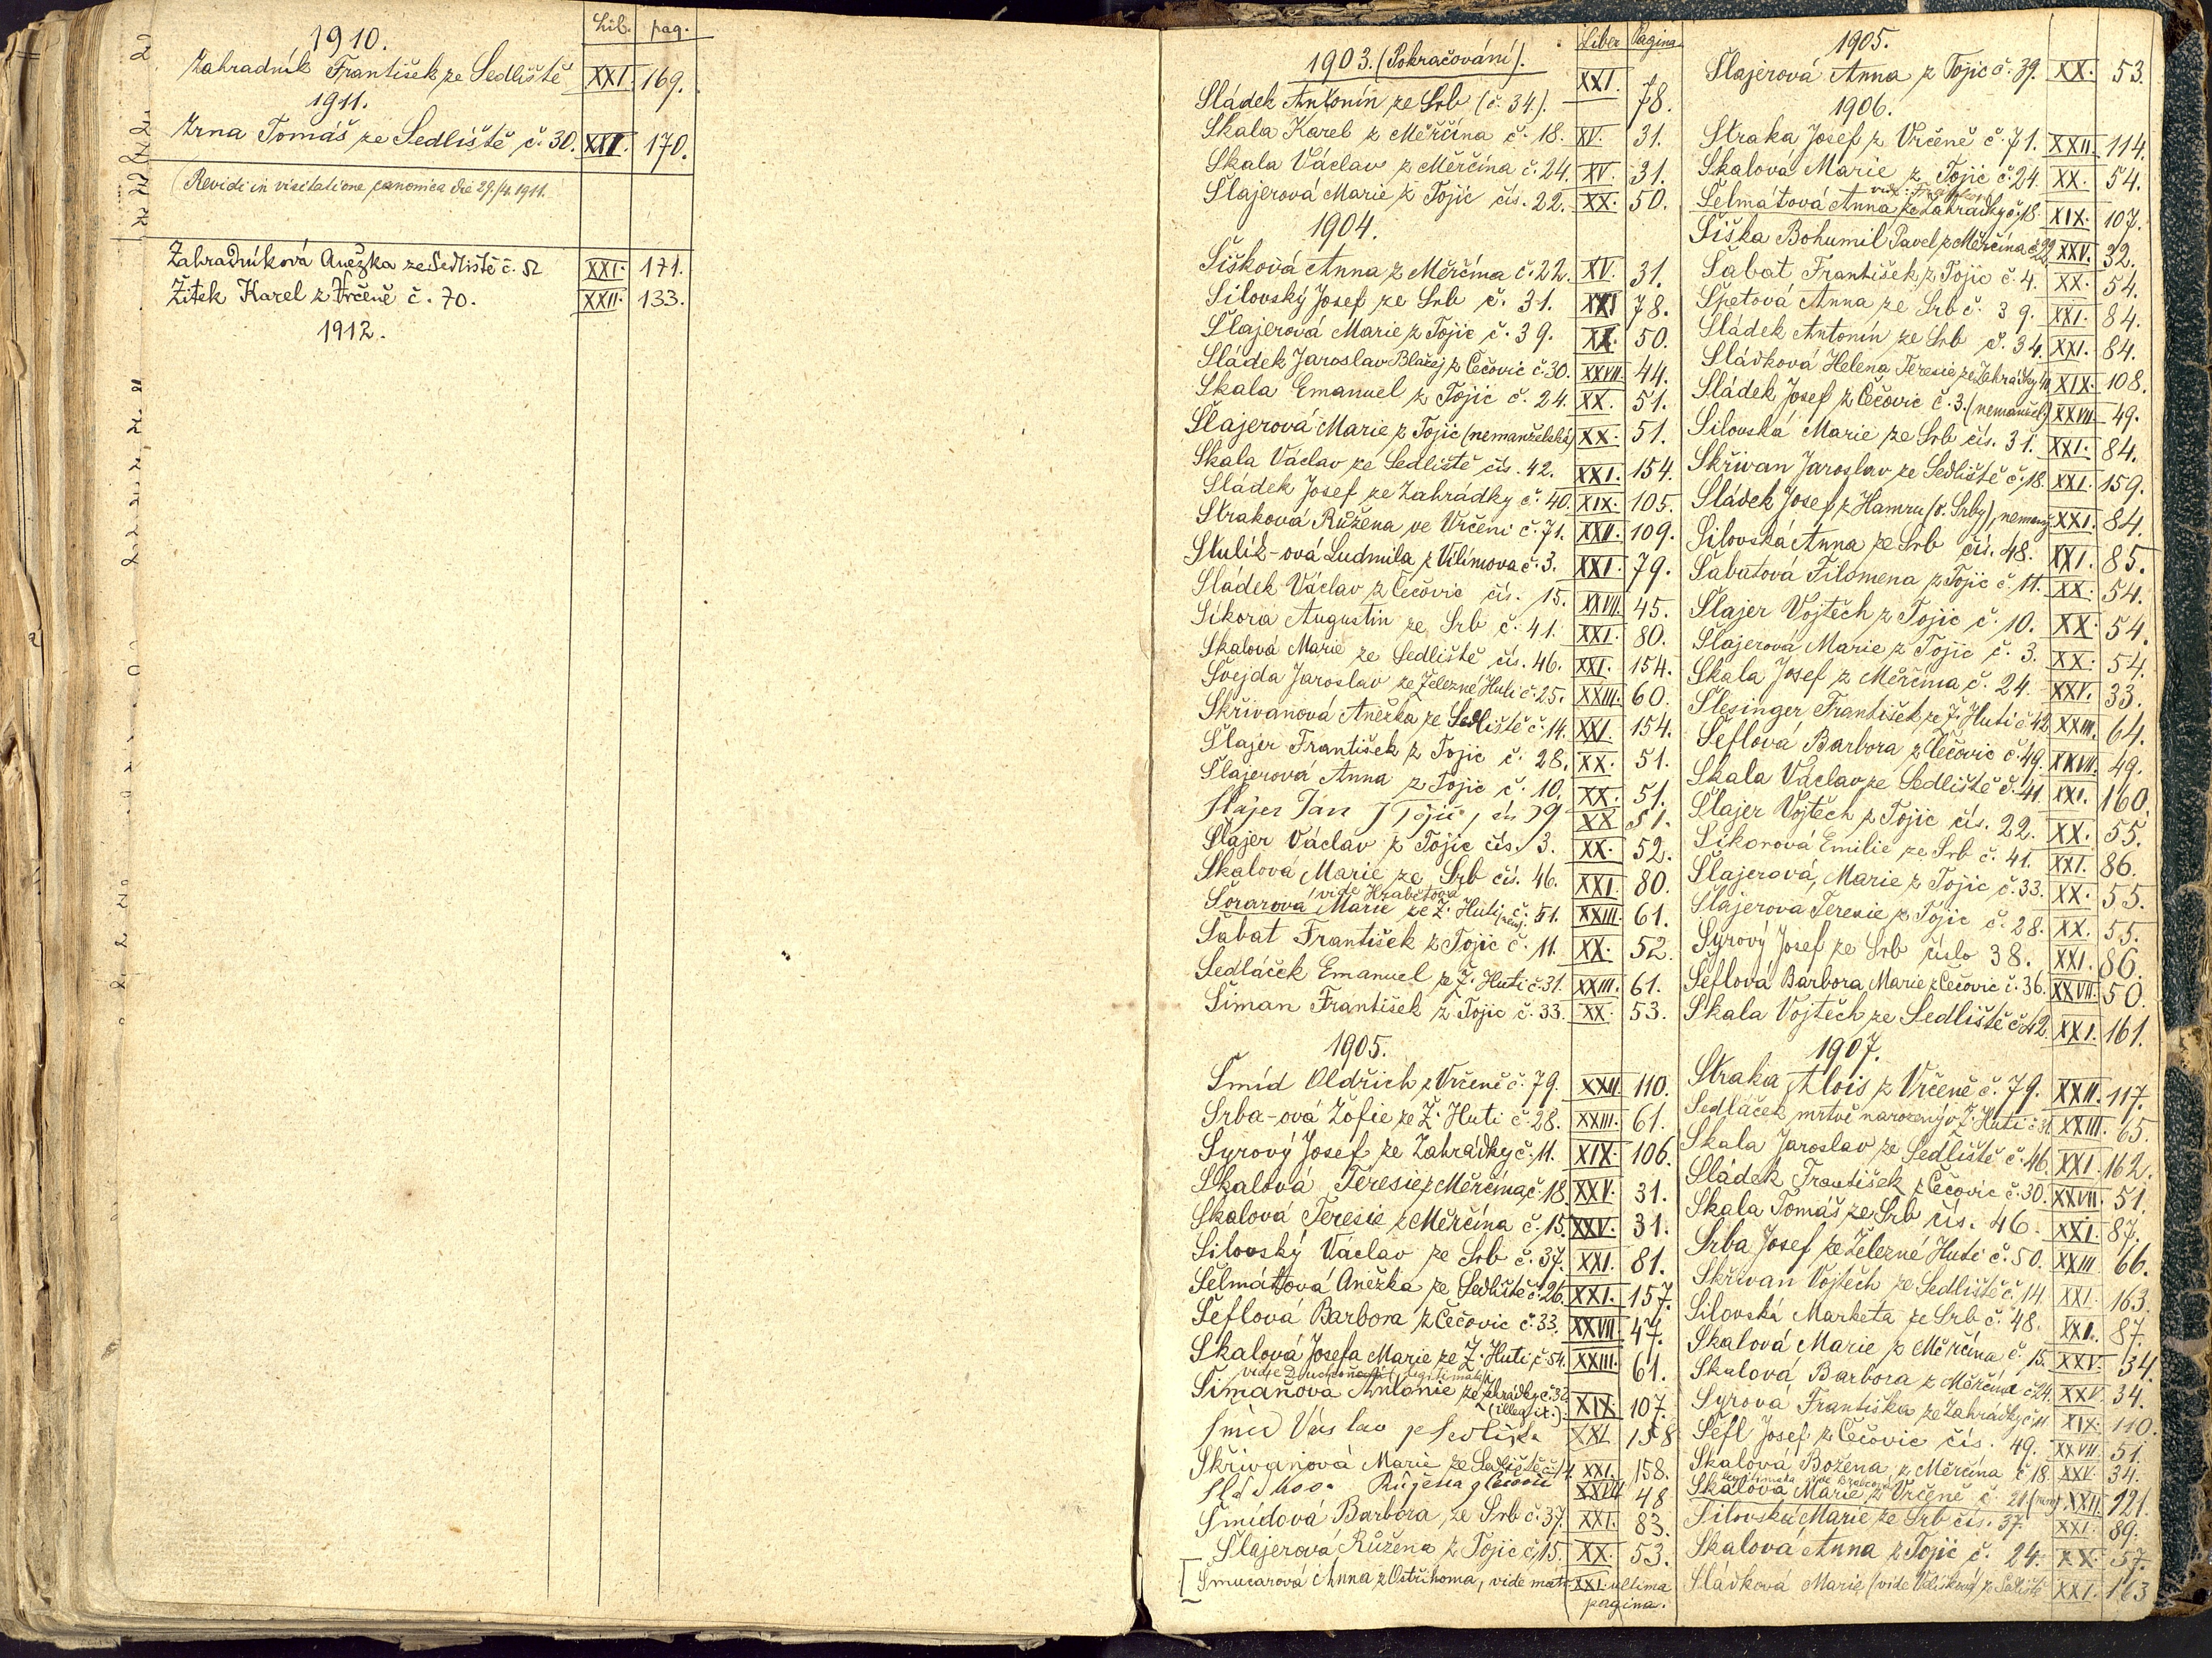 Lib. pag.
1910.
Zahradník František ze Sedliště XXI. 169.
1911.
Zrna Tomáš ze Sedliště č. 30. XXI. 170.
(Revidi in visitatione canonica die 29./4. 1911.
Zahradníková Anežka ze Sedliště č. 52 XXI. 171.
Žitek Karel z Vrčeně č. 70. XXII. 133.
1912.
Liber Pagina
1903. (Pokračování).
Sládek Antonín ze Srb (č. 34). XXI. 78.
Skala Karel z Měrčína č. 18. XV. 31.
Skala Václav z Měrčína č. 24. XV. 31.
Šlajerová Marie z Tojic čís. 22. XX. 50.
1904.
Šišková Anna z Měrčína č. 22. XV. 31.
Silovský Josef ze Srb č. 31. XXI 78.
Šlajerová Marie z Tojic č. 39. XX. 50.
Sládek Jaroslav Blažej z Čečovic č. 30. XXVII. 44.
Skala Emanuel z Tojic č. 24. XX. 51.
Šlajerová Marie z Tojic (nemanželská) XX. 51.
Skala Václav ze Sedliště čís. 42. XXI. 154.
Sládek Josef ze Zahrádky č. 40. XIX. 105.
Straková Růžena ve Vrčeni č. 71. XXII. 109.
Stulík-ová Ludmila z Vilímova č. 3. XXI. 79.
Sládek Václav z Čečovic čís. 15. XXVII. 45.
Sikora Augustin ze Srb č. 41. XXI. 80.
Skalová Marie ze Sedliště čís. 46. XXI. 154.
Švejda Jaroslav ze Železné Huti č. 25. XXIII. 60.
Skřivanová Anežka ze Sedliště č. 14. XXI. 154.
Šlajer František z Tojic č. 28. XX. 51.
Šlajerová Anna z Tojic č. 10. XX. 51.
Šlajer Jan z Tojic, čís 39 XX 51.
Šlajer Václav z Tojic čís. 3. XX. 52.
Skalová Marie ze Srb čís. 46. XXI. 80.
vide Hrabětová
Šorarová Marie ze Ž. Huti č. 51. XXIII. 61.
Šabat František z Tojic č. 11. XX. 52.
Sedláček Emanuel ze Ž. Huti č. 31. XXIII. 61.
Šiman František z Tojic č. 33. XX. 53.
1905.
Šmíd Oldřich z Vrčeně č. 79. XXII. 110.
Srba-ová Žofie ze Ž. Huti č. 28. XXIII. 61.
Syrový Josef ze Zahrádky č. 11. XIX. 106.
Skalová Teresie z Měrčína č. 18. XXV. 31.
Skalová Teresie z Měrčína č. 15. XXV. 31.
Silovský Václav ze Srb č. 37. XXI. 81.
Šelmátová Anežka ze Sedliště č. 26. XXI. 157.
Šeflová Barbora z Čečovic č. 33. XXVII. 47.
Skalová Josefa Marie ze Ž. Huti č. 54. XXIII. 61.
Šimaňová Antonie ze Zahrádky č. 32 (illegit.). XIX. 107.
Šmíd Václav ze Sedliště XXI. 158
Skřivanová Marie ze Sedliště č. 14. XXI. 158.
Sládková Růžena z Čečovic XXVII 48
Šmídová Barbora, ze Srb č. 37. XXI. 83.
Šlajerová Růžena z Tojic č. 15. XX. 53.
Šmucarová Anna z Ostřihoma, vide matr. XXI. ultima
pagina.
1905.
Šlajerová Anna z Tojic č. 39. XX. 53.
1906.
Straka Josef z Vrčeně č. 71. XXII. 114.
Skalová Marie z Tojic č. 24. XX. 54.
Šelmátová Anna ze Zahrádky č. 18. XIX. 107.
Šiška Bohumil Pavel z Měrčína č. 22. XXV. 32.
Šabat František z Tojic č. 4. XX. 54.
Špetová Anna ze Srb č. 39. XXI. 84.
Sládek Antonín ze Srb č. 34. XXI. 84.
Sládková Helena Teresie ze Zahrádky 40 XIX. 108.
Sládek Josef z Čečovic č. 3. (nemanžel.) XXVII. 49.
Silovská Marie ze Srb čís. 31. XXI. 84.
Skřivan Jaroslav ze Sedliště č. 18. XXI. 159.
Sládek Josef z Hamru (o. Srby), nemanž. XXI. 84.
Silovská Anna ze Srb čís. 48. XXI. 85.
Šabatová Filomena z Tojic č. 11. XX. 54.
Šlajer Vojtěch z Tojic č. 10. XX. 54.
Šlajerová Marie z Tojic č. 3. XX. 54.
Skala Josef z Měrčína č. 24. XXV. 33.
Šlesinger František ze Ž. Huti č. 42 XXIII. 64.
Šeflová Barbora z Čečovic č. 49. XXVII. 49.
Skala Václav ze Sedliště č. 41. XXI. 160.
Šlajer Vojtěch z Tojic čís. 22. XX. 55.
Sikorová Emilie ze Srb č. 41. XXI. 86.
Šlajerová, Marie z Tojic č. 33. XX. 55.
Šlajerová Teresie z Tojic č. 28. XX. 55.
Syrový Josef ze Srb číslo 38. XXI. 86.
Šeflová Barbora Marie z Čečovic č. 36. XXVII. 50.
Skala Vojtěch ze Sedliště č. 42. XXI. 161.
1907.
Straka Alois z Vrčeně č. 79. XXII. 117.
Sedláček mrtvě narozený v Ž. Huti č. 31. XXIII. 65.
Skala Jaroslav ze Sedliště č. 46. XXI. 162.
Sládek František z Čečovic č. 30. XXVII. 51.
Skala Tomáš ze Srb čís. 46. XXI. 87.
Srba Josef ze Železné Huti č. 50. XXIII 66.
Skřivan Vojtěch ze Sedliště č. 14. XXI. 163.
Silovská Marketa ze Srb č. 48. XXI. 87.
Skalová Marie z Měrčína č. 15. XXV. 34.
Skalová Barbora z Měrčína č. 24. XXV. 34.
Syrová Františka ze Zahrádky č. 11. XIX. 110.
Šefl Josef z Čečovic čís. 49. XXVII. 51.
Skalová Božena z Měrčína č. 18. XXV. 34.
Skalová Marie z Vrčeně č. 21. (nem.) XXII. 121.
Silovská Marie ze Srb čís. 37. XXI. 89.
Skalová Anna z Tojic č. 24. XX. 57.
Sládková Marie (vide Volišková) ze Sedliště XXI. 163